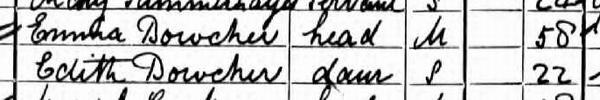 Servant S
Emma Dowcher head M 58
Edith Dowcher daur S 22